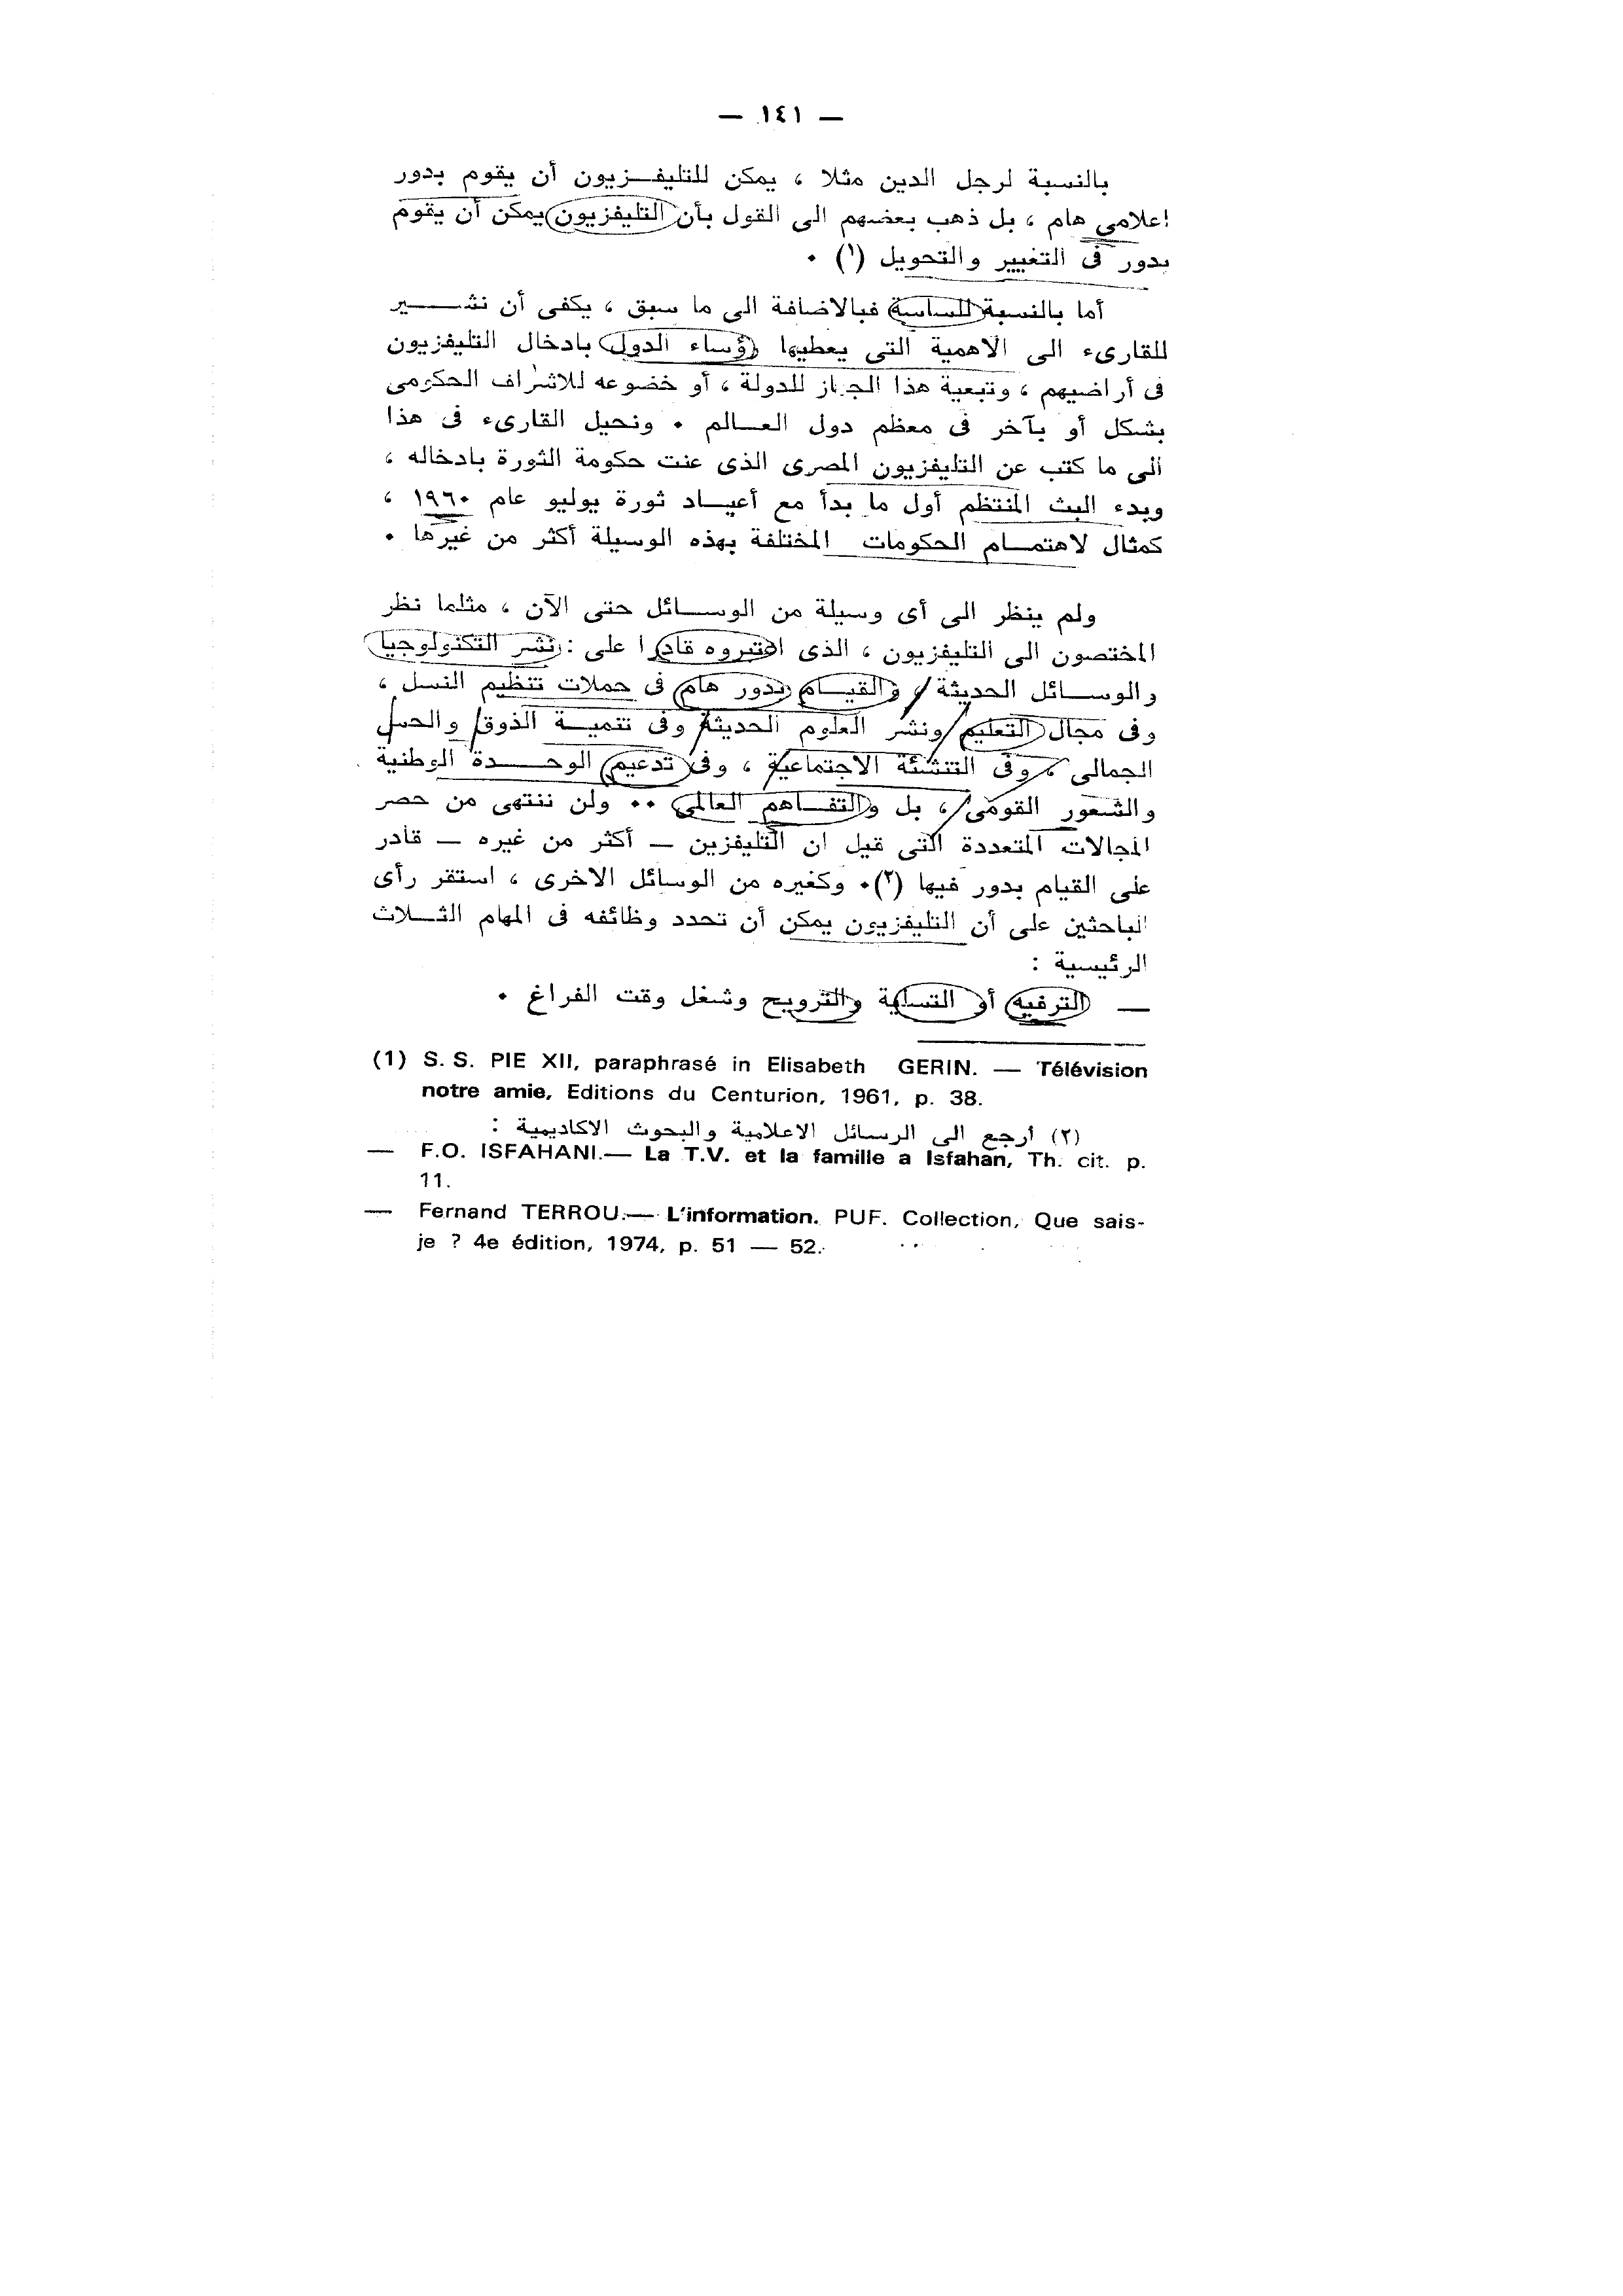 — ١٤١ —
بالنسبة لرجل الدين مثلا ، يمكن للتليفزيون أن يقوم بدور
اعلامى هام ، بل ذهب بعضهم الى القول بأن التليفزيون يمكن أن يقوم
بدور فى التغيير والتحويل (١) .
أما بالنسبة للساسة فبالاضافة الى ما سبق ، يكفى أن نشير
للقارىء الى الاهمية التى يعطيها رؤساء الدول بادخال التليفزيون
فى أراضيهم ، وتبعية هذا الجهاز للدولة ، أو خضوعه للاشراف الحكومى
بشكل أو بآخر فى معظم دول العالم . ونحيل القارىء فى هذا
الى ما كتب عن التليفزيون المصرى الذى عنت حكومة الثورة بادخاله ،
وبدء البث المنتظم أول ما بدأ مع أعياد ثورة يوليو عام ١٩٦٠ ،
كمثال لاهتمام الحكومات المختلفة بهذه الوسيلة أكثر من غيرها .
ولم ينظر الى أى وسيلة من الوسائل حتى الآن ، مثلما نظر
المختصون الى التليفزيون ، الذى اعتبروه قادرا على : نشر التكنولوجيا
والوسائل الحديثة ، والقيام بدور هام فى حملات تنظيم النسل ،
وفى مجال التعليم ونشر العلوم الحديثة وفى تنمية الذوق والحس
الجمالى ، وفى التنشئة الاجتماعية ، وفى تدعيم الوحدة الوطنية
والشعور القومى ، بل والتفاهم العالمى .. ولن ننتهى من حصر
المجالات المتعددة التى قيل ان التليفزين — أكثر من غيره — قادر
على القيام بدور فيها (٢). وكغيره من الوسائل الاخرى ، استقر رأى
الباحثين على أن التليفزيون يمكن أن تحدد وظائفه فى المهام الثلاث
الرئيسية :
— الترفيه أو التسلية والترويح وشغل وقت الفراغ .
(1) S. S. PIE XII, paraphrasé in Elisabeth GERIN. — Télévision
notre amie, Editions du Centurion, 1961, p. 38.
(٢) أرجع الى الرسائل الاعلامية والبحوث الاكاديمية :
— F.O. ISFAHANI.— La T.V. et la famille a Isfahan, Th. cit. p.
11.
— Fernand TERROU.— L'information. PUF. Collection, Que sais-
je ? 4e édition, 1974, p. 51 — 52.